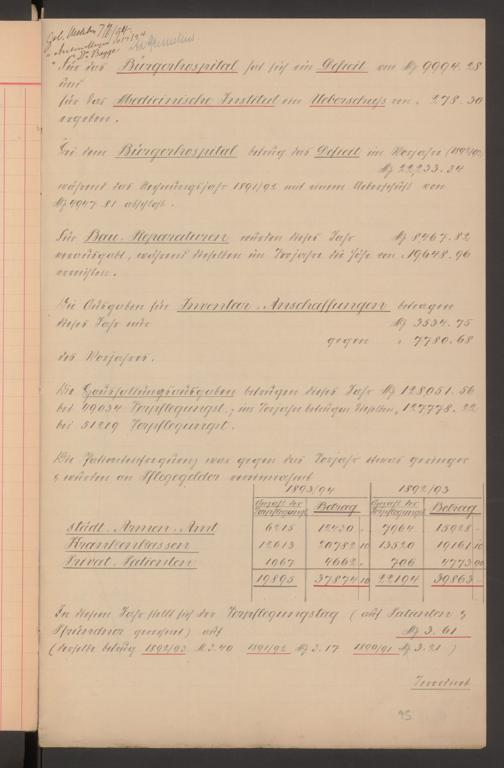 Für das Bürgerhospital hat sich ein Deficit von M 9994.28
und
für das Medicinische Institut ein Ueberschuß von " 278.30
ergeben.
Bei dem Bürgerhospital betrug das Deficit im Vorjahr (1892/93)
M 22,233.34
während das Rechnungsjahr 1891/92 mit einem Ueberschuß von
M 4947.81 abschloß.
Für Bau-Reparaturen wurden dieses Jahr M 8467.82
verausgabt, während dieselben im Vorjahre die Höhe von " 19648.96
erreichten.
Die Ausgaben für Inventar-Anschaffungen betragen
dieses Jahr nur M 3534.75
gegen " 7780.68
des Vorjahres.
Die Haushaltungsausgaben betrugen dieses Jahr M 128051.56
bei 49034 Verpflegungst.; im Vorjahr betrugen dieselben " 127778.22
bei 51219 Verpflegungst.
Die Patientenfrequenz war gegen das Vorjahr etwas geringer
& wurden an Pflegegelder vereinnahmt
1893/94 1892/93
Anzahl der Verpflegungst. Betrag Anzahl der Verpflegungst. Betrag
städt. Armen-Amt 6215 12430 - 7964 15928 -
Krankenkassen 12613 20782 10 13520 19161 10
Privat-Patienten 1067 4662 - 706 4773 90
19895 37874 10 22194 39863 -
In diesem Jahr stellt sich der Verpflegungstag (auf Patienten &
Pfründner gerechnet) auf M 3.61
(derselbe betrug 1892/93 M 3.40 1891/92 M 3.17 1890/91 M 3.21)
95.